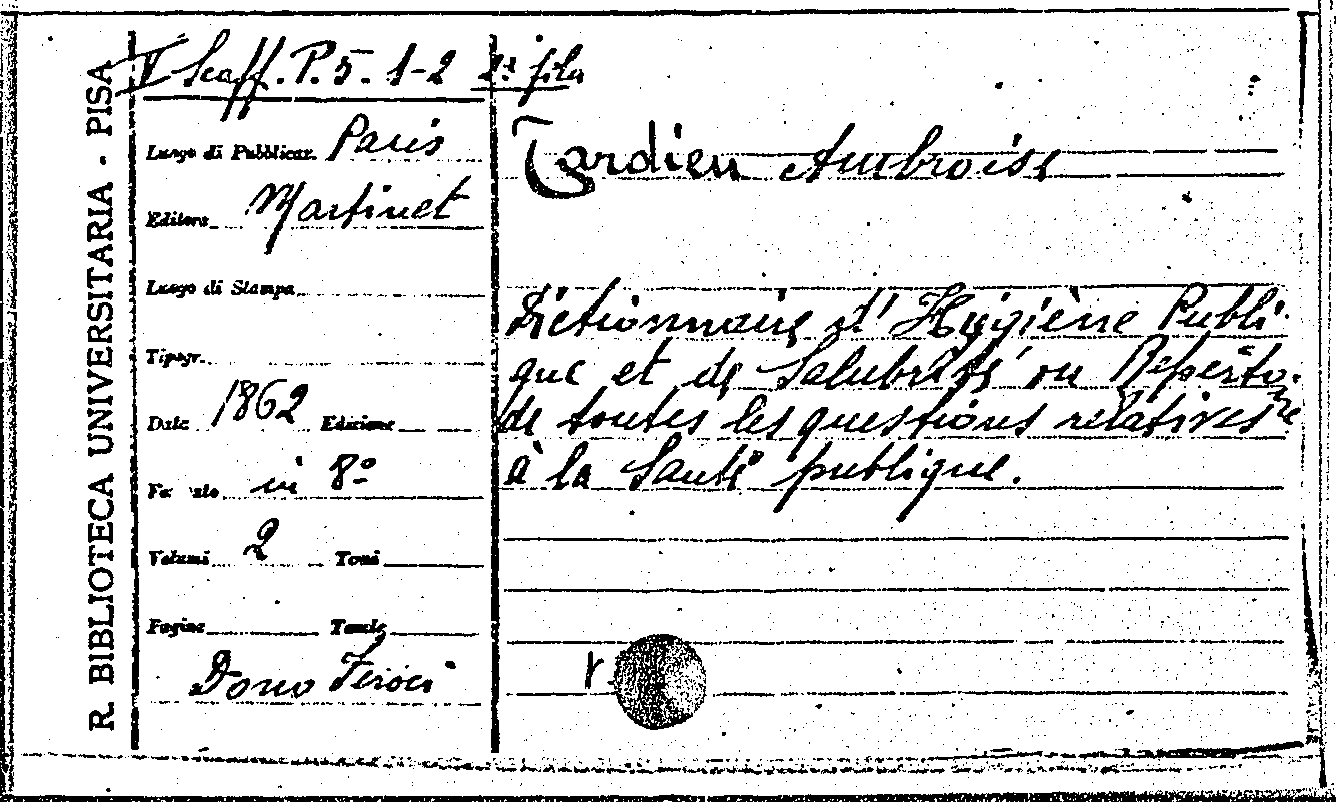 R. BIBLIOTECA UNIVERSITARIA - PISA
V Scaff. P. 5. 1-2 2ª fila
Luogo di Pubblicaz. Paris
Editore Martinet
Luogo di Stampa
Tipogr.
Data 1862 Edizione
Formato in 8º
Volumi 2 Tomi
Pagine Tavole
Dono Feroci
Tardieu Ambroise
Dictionnaire d'Hygiène Publi-
que et de Salubrité ou Répertoire
de toutes les questions relatives
à la Santé publique.